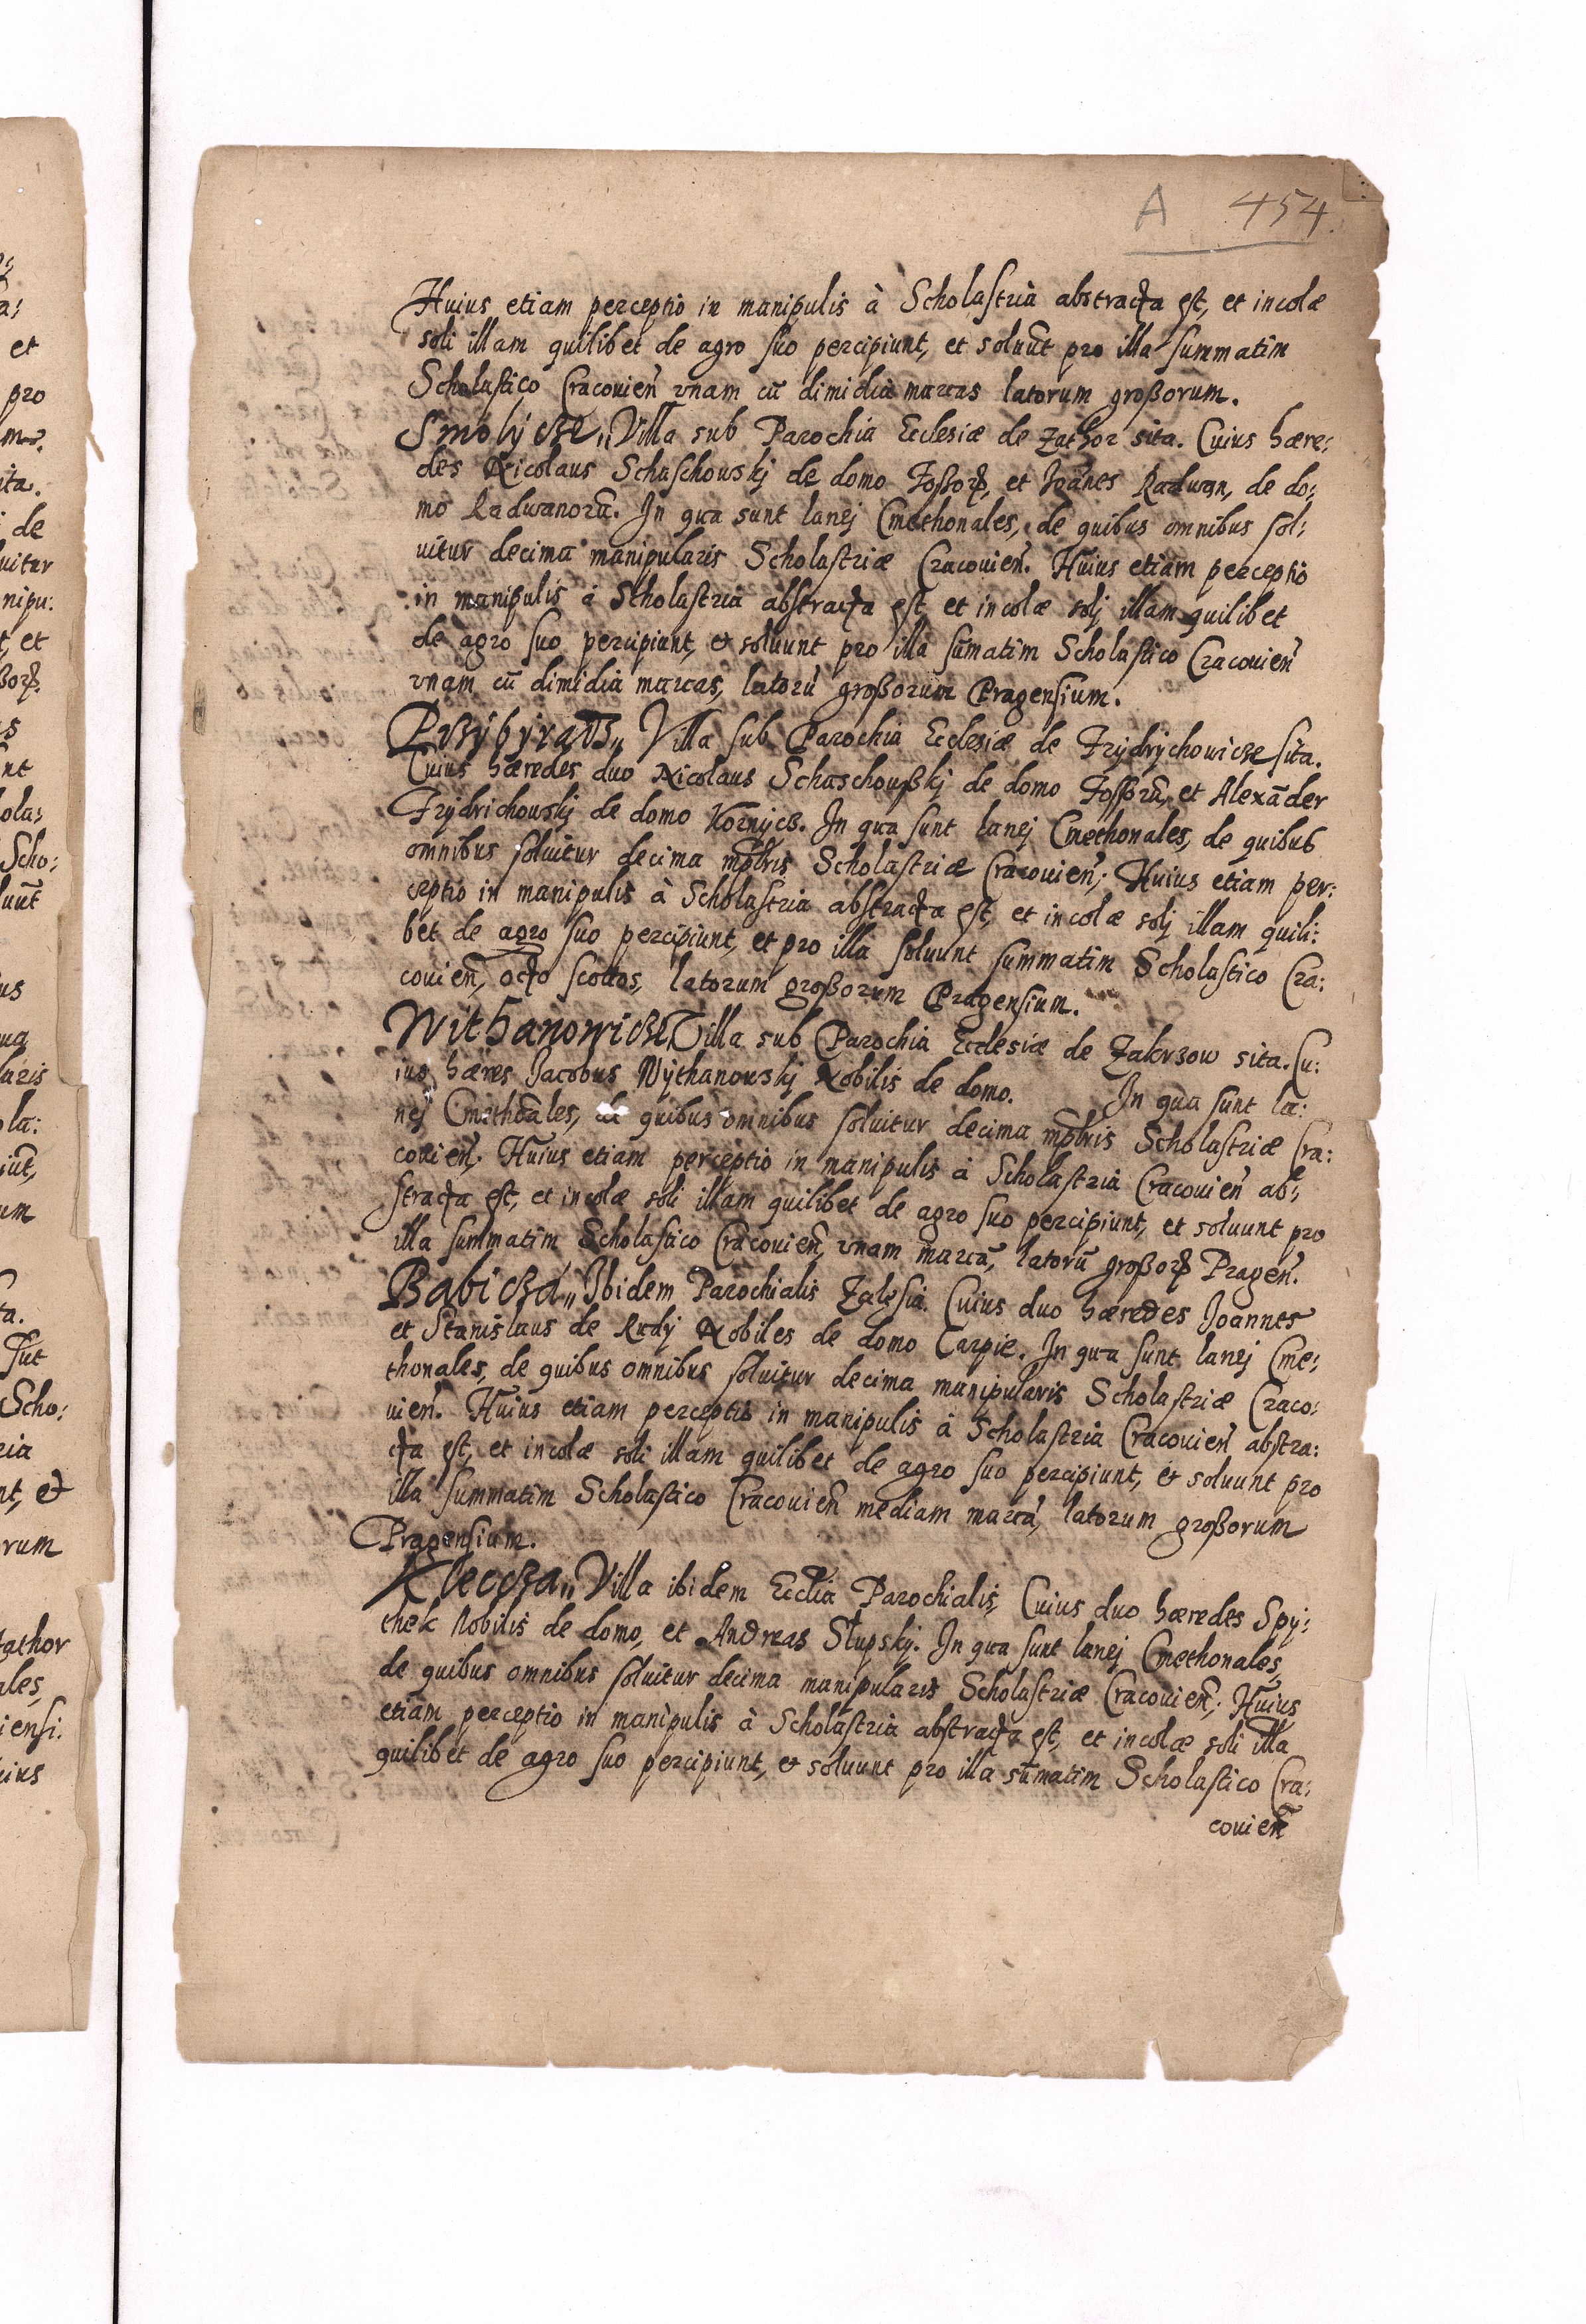 A 454.
Huius etiam perceptio in manipulis à Scholastria abstracta est, et incolæ
soli illam quilibet de agro suo percipiunt, et soluūt pro illa summatim
Scholastico Cracouień vnam cū dimidia marcas latorum großorum.
Smolÿcze„ Villa sub Parochia Ecclesiæ de Zathor sita. Cuius hære:
des Nicolaus Schaschowskj de domo Foßorꝝ, et Joānes Radwan, de do:
mo Radwanorū. In qua sunt lanej Cmethonales, de quibus omnibus sol:
uitur decima manipularis Scholastriæ Cracouień. Huius etiam perceptio
in manipulis à Scholastria abstracta est, et incolæ solj illam quilibet
de agro suo percipiunt, & soluunt pro illa sūmatim Scholastico Cracouień
vnam cū dimidia marcas, latorū großorum Pragensium.
Przÿbÿradz„ Villa sub Parochia Ecclesiæ de Frÿdrÿchowicze sita.
Cuius hæredes duo Nicolaus Schaschoußkj de domo Fossorū, et Alexāder
Frÿdrichouskj de domo Kornÿcz. In qua sunt lanej Cmethonales, de quibus
omnibus soluitur decima mp̄lris Scholastriæ Cracouień; Huius etiam per:
ceptio in manipulis à Scholastria abstracta est, et incolæ solj illam quili:
bet de agro suo percipiunt, et pro illa soluunt summatim Scholastico Cra:
couień, octo scottos, latorum großorum Pragensium.
Withanowicze Villa sub Parochia Ecclesiæ de Zakrzow sita. Cu:
ius hæres Jacobus Wÿthanowskj Nobilis de domo. In qua sunt la:
nej Cmethōales, de quibus omnibus soluitur decima mp̄lris Scholastriæ Cra:
couień; Huius etiam perceptio in manipulis à Scholastria Cracouień ab:
stracta est, et incolæ soli illam quilibet de agro suo percipiunt, et soluunt pro
illa summatim Scholastico Cracouień, vnam marcā, latorū großorꝝ Prageń.
Babicza„ Ibidem Parochialis Zalesia. Cuius duo hæredes Joannes
et Stanislaus de Rudÿ Nobiles de domo Carpie. In qua sunt lanej Cme:
thonales, de quibus omnibus soluitur decima manipularis Scholastriæ Craco:
uień. Huius etiam perceptio in manipulis à Scholastria Cracouień abstra:
cta est, et incolæ soli illam quilibet de agro suo percipiunt, & soluunt pro
illa summatim Scholastico Cracouień mediam marcā, latorum großorum
Pragensium.
Klecza„ Villa ibidem Ecclīa Parochialis, Cuius duo hæredes Spÿ:
thek Nobilis de domo, et Andreas Słupskj. In qua sunt lanej Cmethonales,
de quibus omnibus soluitur decima manipularis Scholastriæ Cracouień; Huius
etiam perceptio in manipulis à Scholastria abstracta est, et incolæ soli illā
quilibet de agro suo percipiunt, & soluunt pro illa sūmatim Scholastico Cra:
couień